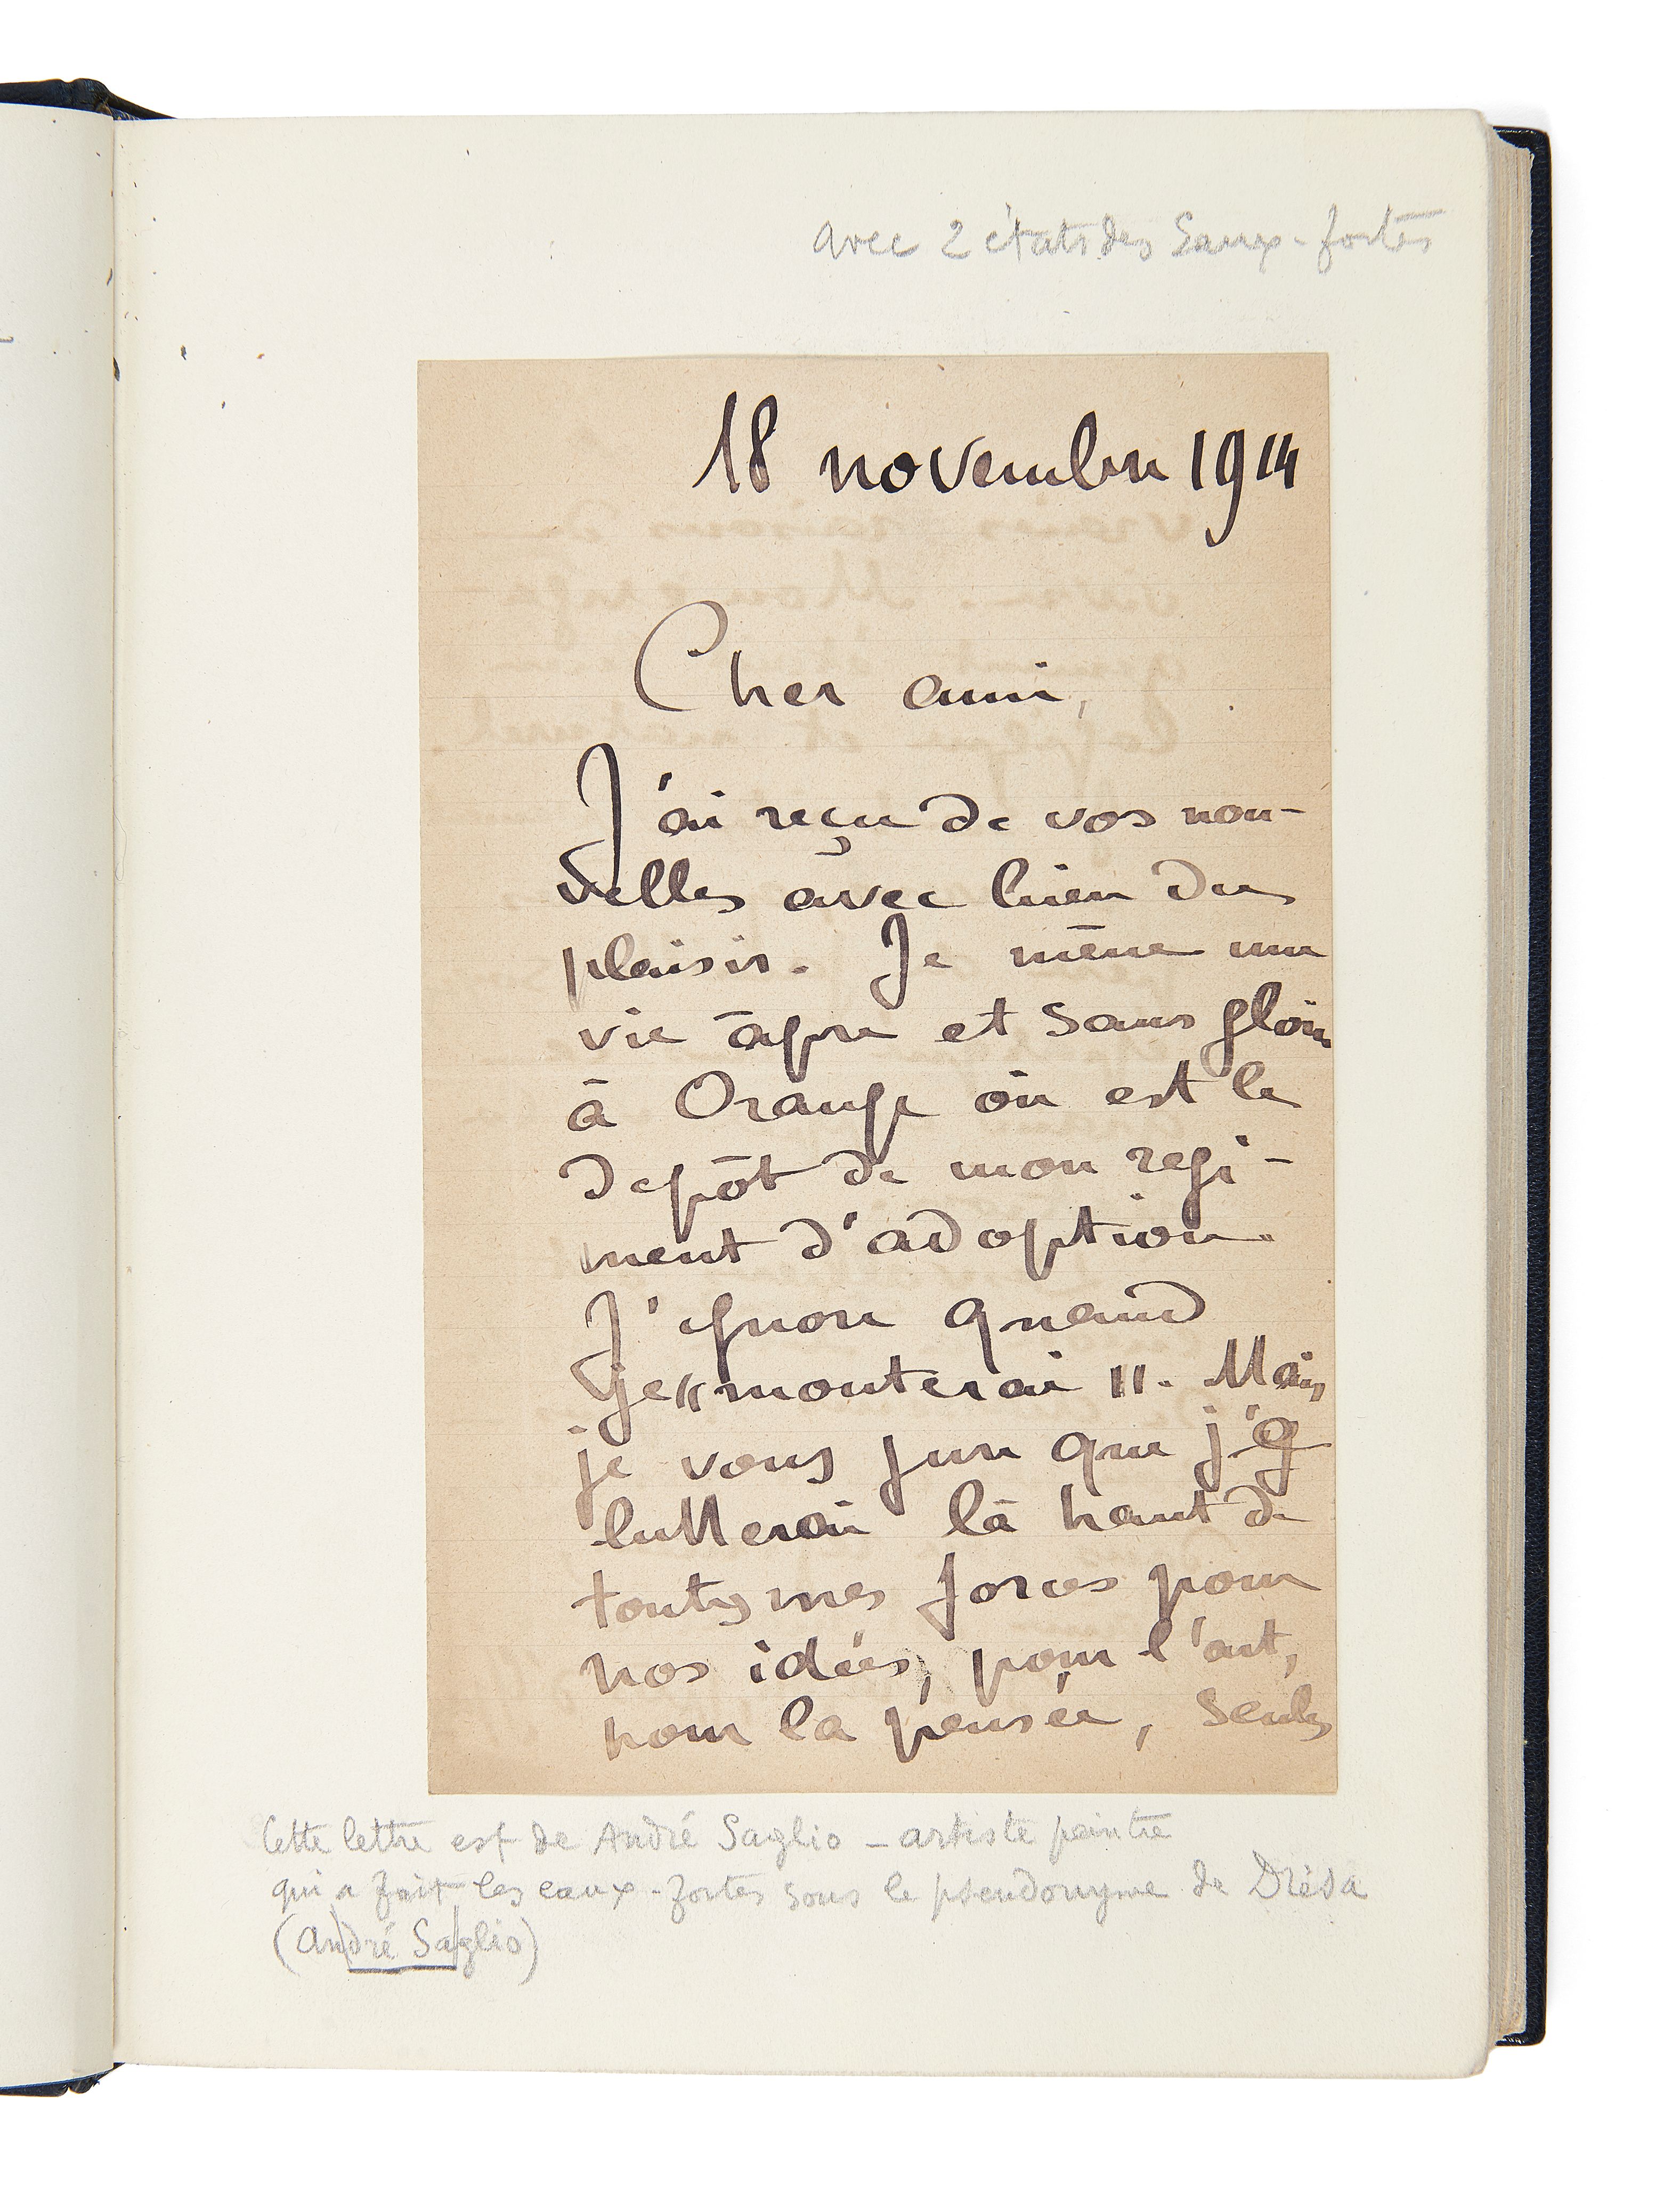 avec 2 états des Eaux-fortes
18 novembre 1914
Cher ami,
J'ai reçu de vos nou-
velles avec bien du
plaisir. Je mène une
vie âpre et sans gloire
à Orange où est le
depôt de mon regi-
ment d'adoption.
J'ignore quand
je "monterai". Mais
je vous jure que j'y
lutterai là haut de
toutes mes forces pour
nos idées, pour l'art,
pour la pensée, seules
Cette lettre est de André Saglio - artiste peintre
qui a fait les eaux-fortes sous le pseudonyme de Drésa
(André Saglio)